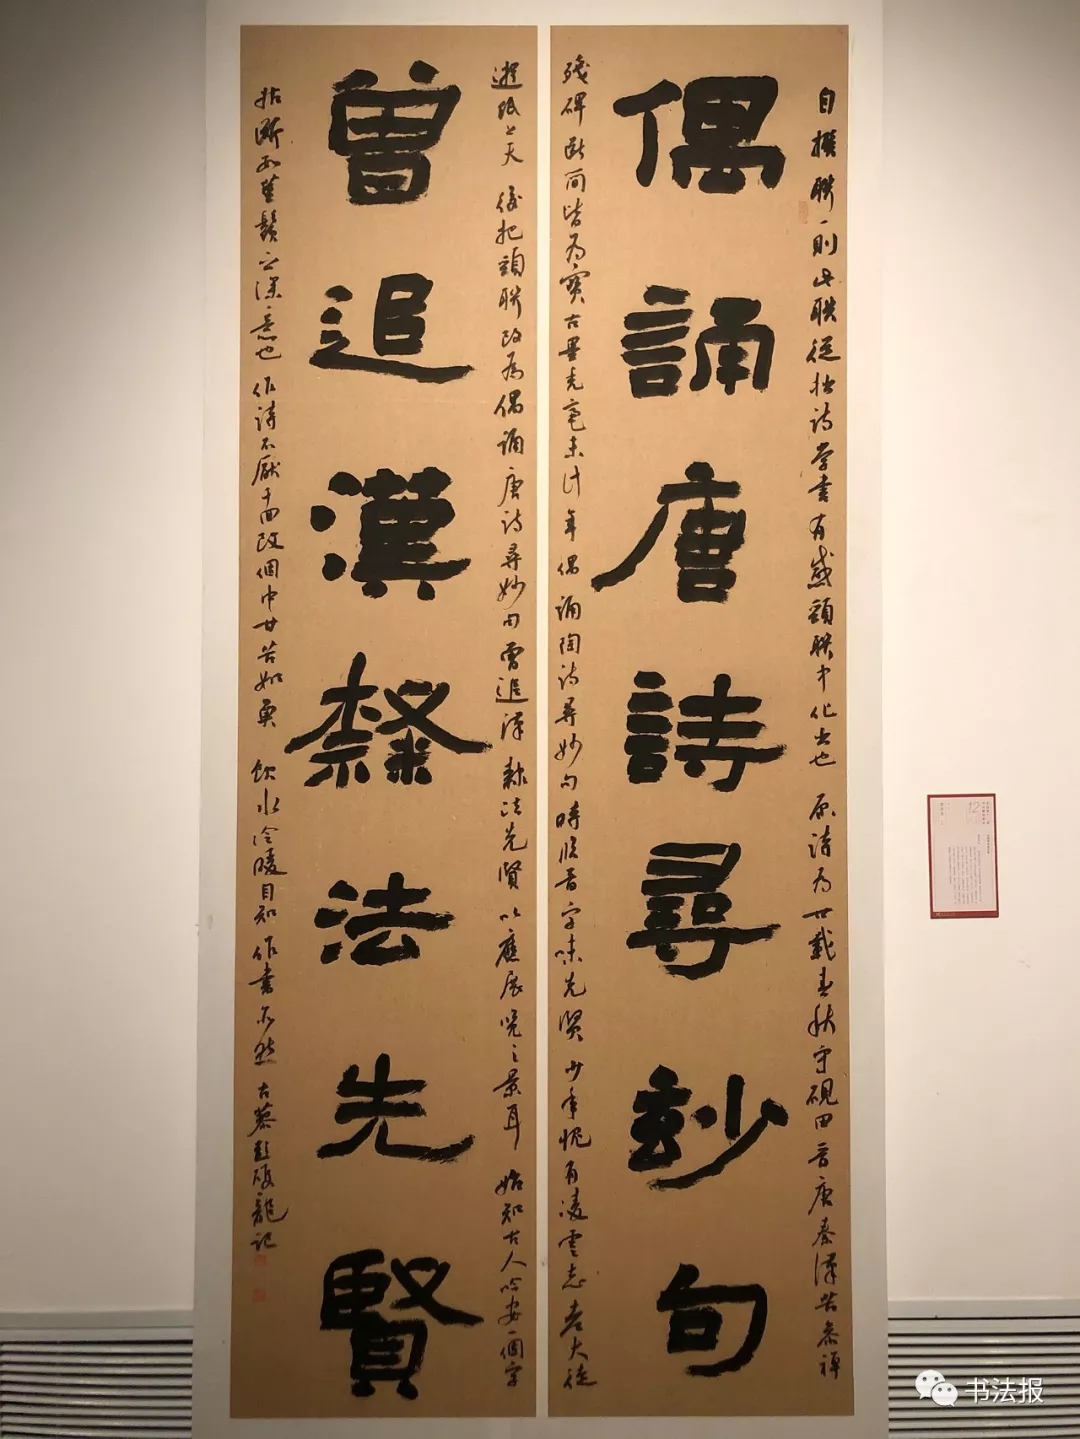 偶誦唐詩尋妙句
曾追漢隸法先賢
自撰聯一則此聯從拙詩學書有感額聯中化出也 原詩為 廿載春秋守硯田晉唐秦漢苦參禪
殘碑斷簡皆為寶古墨光毫未計年偶誦陶詩尋妙句時臨晉字味先賢少年愧有凌雲志老大徒
遊紙上天 後把額聯改為偶誦唐詩尋妙句曾追漢隸法先賢以應展覽之景耳 始知古人吟安一個字
拈斷數莖鬚之深意也 作詩不厭千回改個中甘苦如魚飲水冷暖自知作書亦然 古
龍記
12
书法报